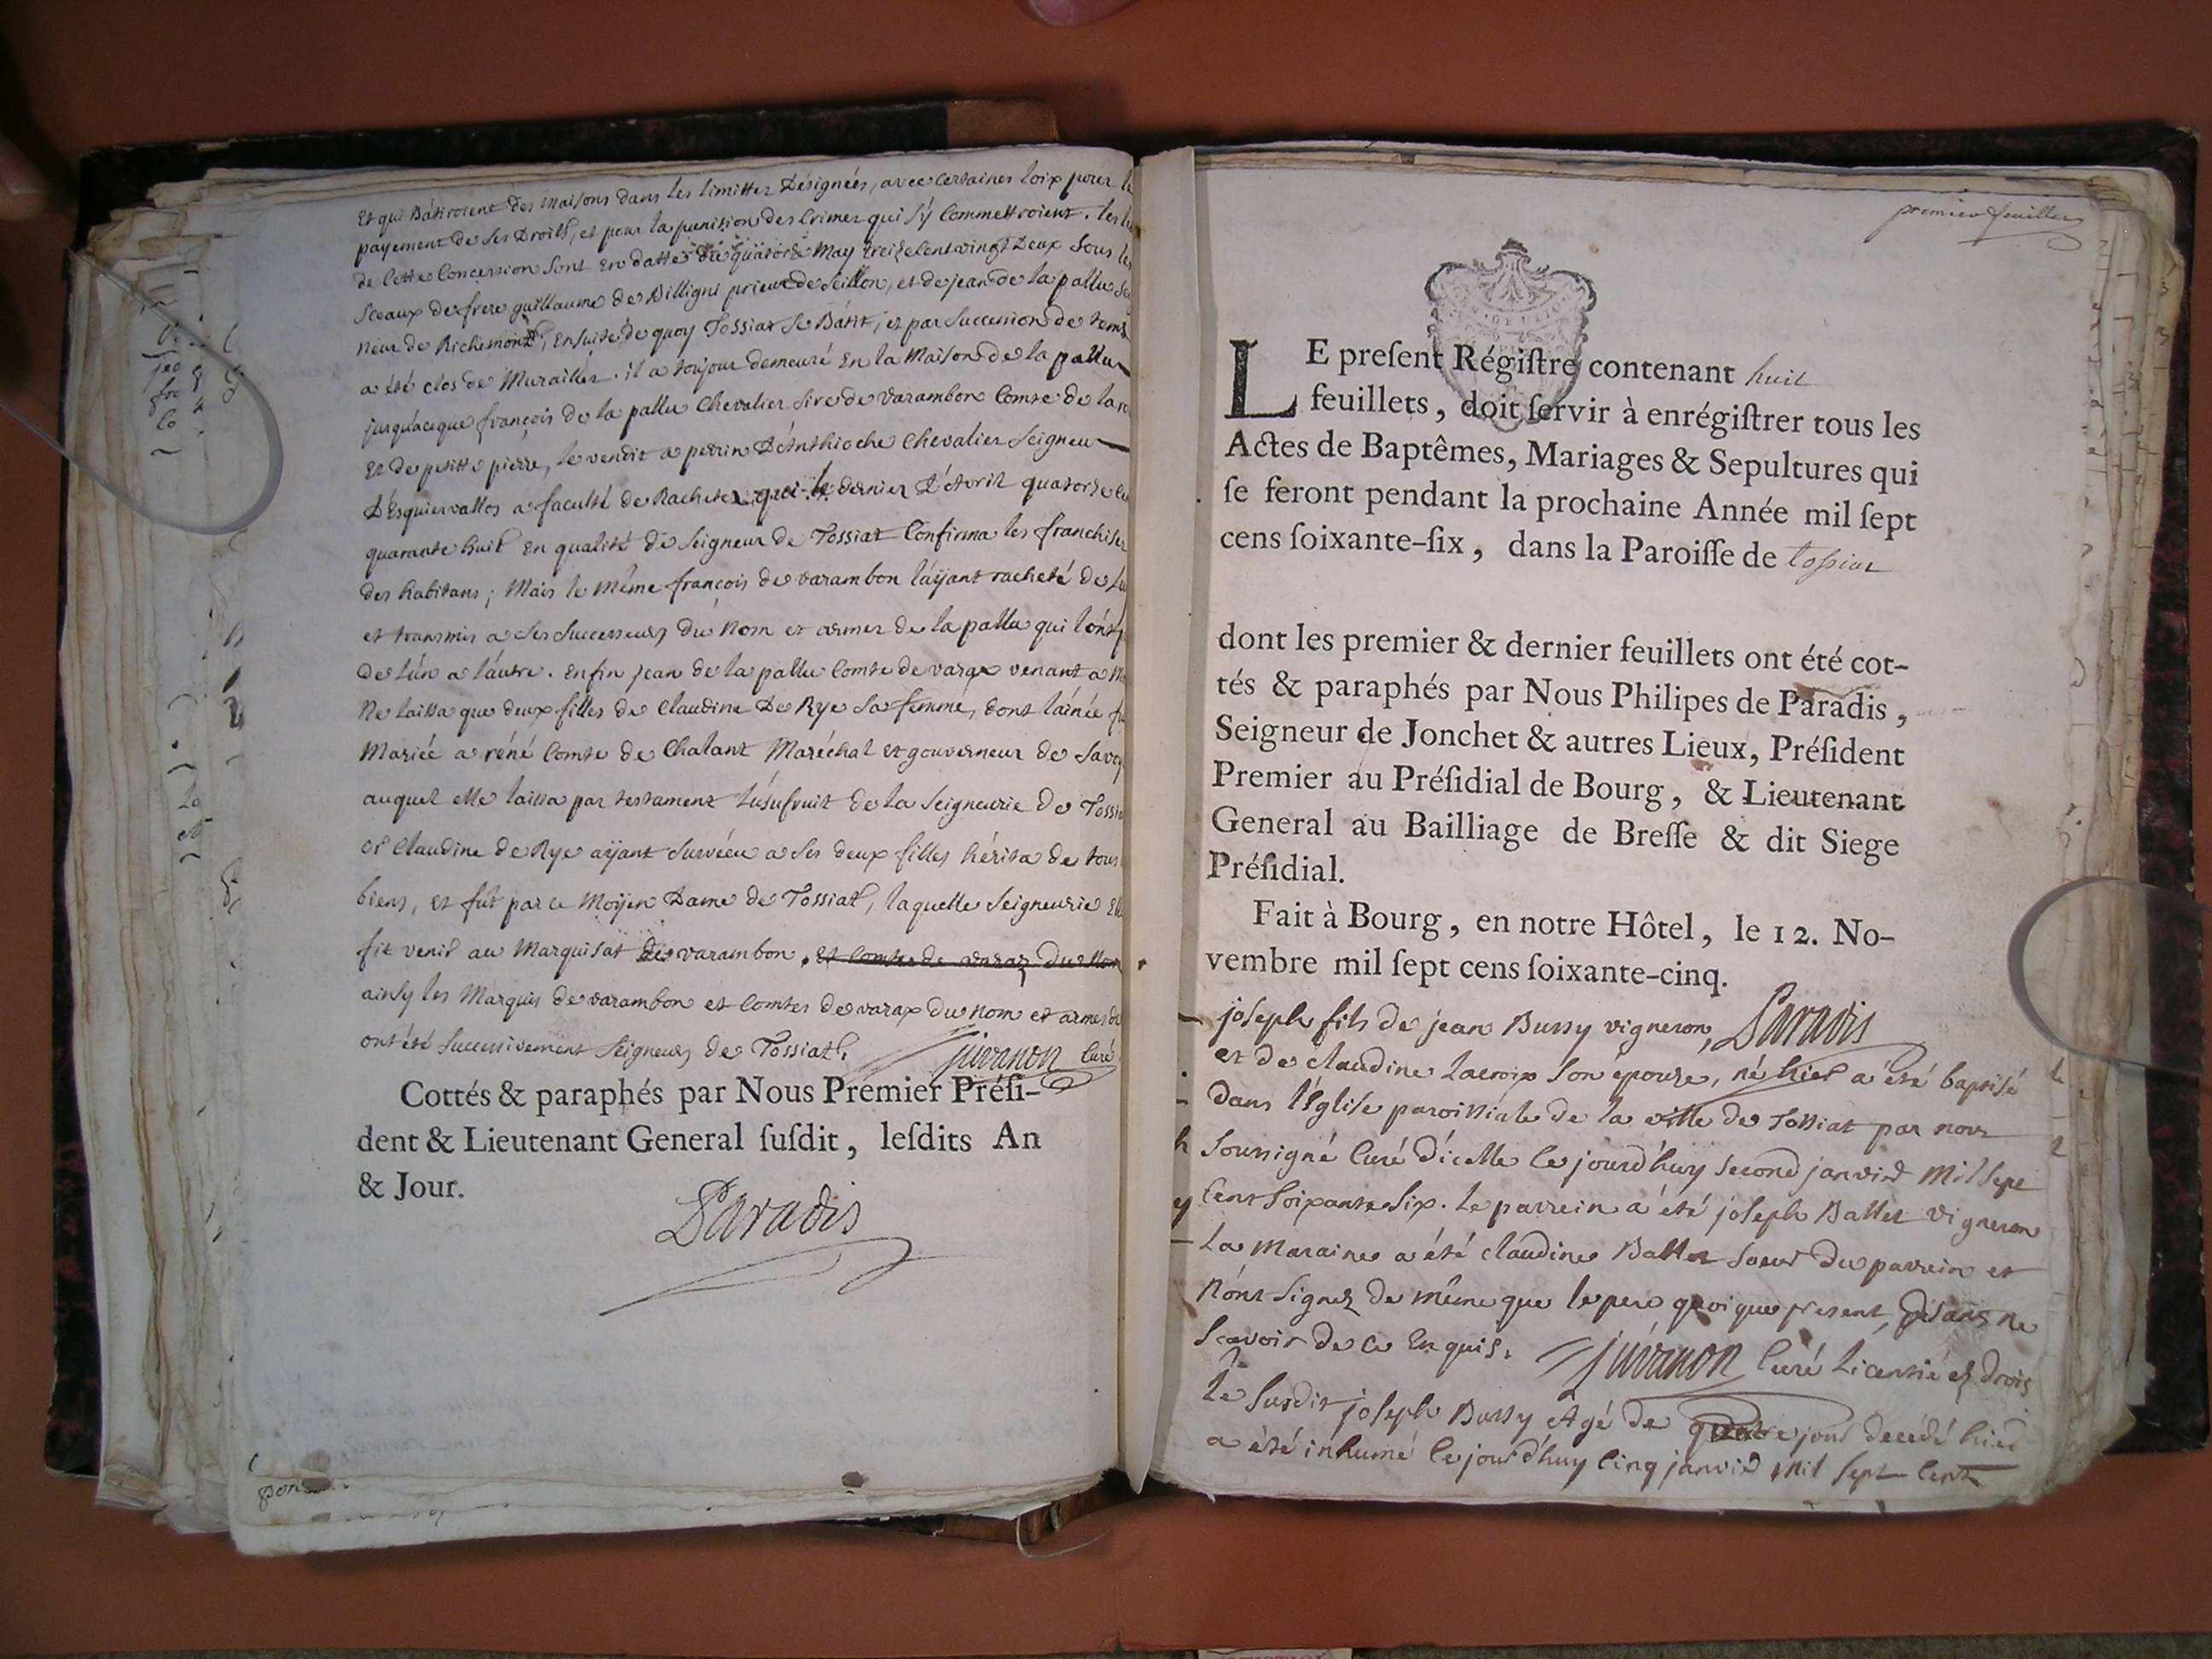 Et qui Bâtiroient des Maisons dans les limittes Désignées, avec certaines loix pour le
payement de ses Droits, et pour la punition des Crimes qui s'y Commettroient. les
de cette Concession sont En datte du quatorze May treize cent vingt Deux sous les
Sceaux de frere guillaume de Billigni prieur de Seillon, et de jean de la pallu
neur de Richemont, Ensuite de quoy Tossiat se Bâtit, et par succession de tems
a été clos de Murailles. il a toujour demeuré En la Maison de la pallu
jusqu'aceque françois de la pallu Chevalier sire de Varambon Comte de la
et de petitte pierre, le vendit a perrin D'Anthioche Chevalier Seigneu
D'Esquiervallos a faculté de Rachete, qui le dernier D'Avril quatorze
quarante huit En qualité de Seigneur de Tossiat Confirma les franchises
des habitans; Mais le Même françois de varambon l'aÿant racheté de
et transmis a ses successeurs du Nom et armes de la pallu qui l'ont
de l'un a l'autre. Enfin jean de la pallu Comte de varax venant a
Ne laissa que deux filles de Claudine De Rye sa femme, dont l'ainée
Mariée a réné Comte de Chalant Maréchal et gouverneur de Savoy
auquel elle laissa par testament l'usufruit de la Seigneurie de Tossia
or Claudine de Rye aÿant survécu a ses deux filles hérita de tous
biens, et fut par ce Moÿen Dame de Tossiat, laquelle Seigneurie
fit venir au Marquisat de varambon. et Comtes de varax du Nom
ainsy les Marquis de varambon et Comtes de varax du Nom et armes de
ont été successivement Seigneurs de Tossiat. juvanon Curé
Cottés & paraphés par Nous Premier Préſi-
dent & Lieutenant General ſuſdit, leſdits An
& Jour.
Paradis
premier feuillet
LE preſent Régiſtre contenant huit
feuillets, doit ſervir à enrégiſtrer tous les
Actes de Baptêmes, Mariages & Sepultures qui
ſe feront pendant la prochaine Année mil ſept
cens ſoixante-ſix, dans la Paroiſſe de tossiat
dont les premier & dernier feuillets ont été cot-
tés & paraphés par Nous Philipes de Paradis,
Seigneur de Jonchet & autres Lieux, Préſident
Premier au Préſidial de Bourg, & Lieutenant
General au Bailliage de Breſſe & dit Siege
Préſidial.
Fait à Bourg, en notre Hôtel, le 12. No-
vembre mil ſept cens ſoixante-cinq.
Paradis
joseph fils de jean Bussy vigneron,
et de claudine Lacroix son épouse, né hier a été baptisé
dans l'Église paroissiale de la ville de Tossiat par nous
soussigné Curé d'icelle ce jourd'huy second janvier Mil sept
Cent soixante six. Le parrein a été joseph Ballet vigneron
La Maraine a été claudine Ballet soeur du parrein et
N'ont signez de même que le pere quoique present, disans ne
scavoir de ce Enquis. juvanon Curé Licentié es Drois
Le susdit joseph Bussy Agé de quatre jour decédé hier
a été inhumé ce jourd'huy Cinq janvier Mil sept Cent